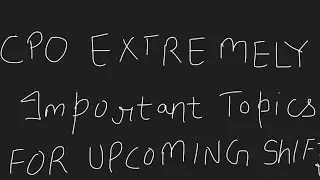 CPO EXTREMELY
Important Topics
FOR UPCOMING SHIFT